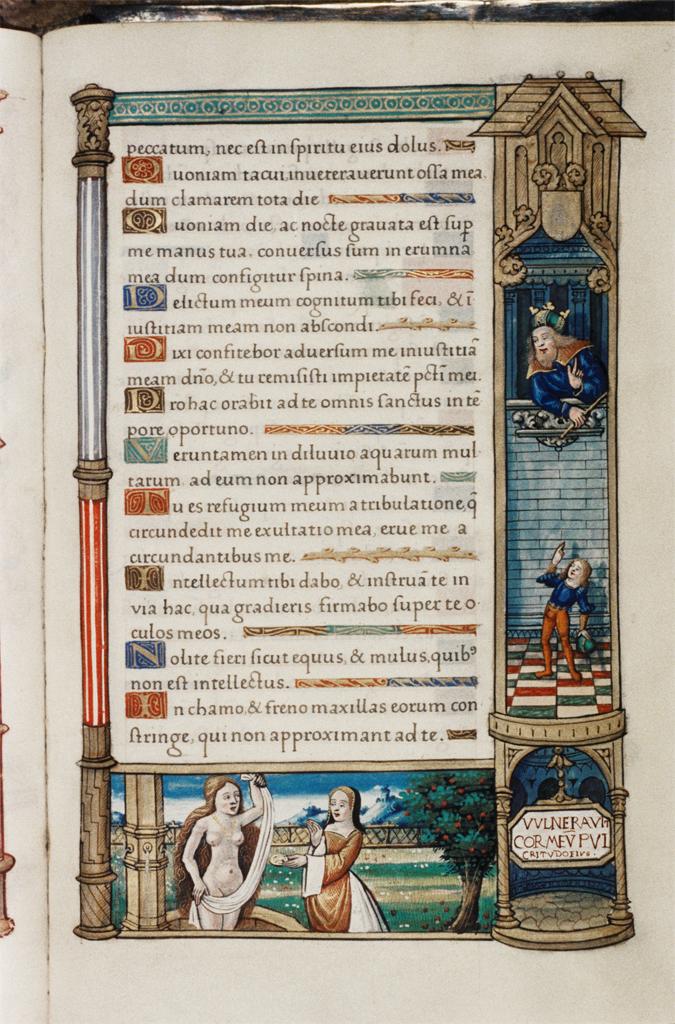 peccatum, nec est in spiritu eius dolus.
Quoniam tacui, inueterauerunt ossa mea
dum clamarem tota die
Quoniam die, ac nocte grauata est sup
me manus tua, conuersus sum in erumna
mea dum configitur spina.
Delictum meum cognitum tibi feci, & ī
iustitiam meam non abscondi.
Dixi confitebor aduersum me iniustitiā
meam dño, & tu remisisti impietatē pcti mei.
Pro hac orabit ad te omnis sanctus in tē
pore oportuno.
Veruntamen in diluuio aquarum mul
tarum, ad eum non approximabunt.
Tu es refugium meum a tribulatione, q̄
circundedit me exultatio mea, erue me a
circundantibus me.
Intellectum tibi dabo, & instruā te in
via hac, qua gradieris firmabo super te o
culos meos.
Nolite fieri sicut equus, & mulus, quibꝰ
non est intellectus.
In chamo, & freno maxillas eorum con
stringe, qui non approximant ad te.
VVLNERAVIT
COR MEV̄ PVL
CRITVDO EIVS.